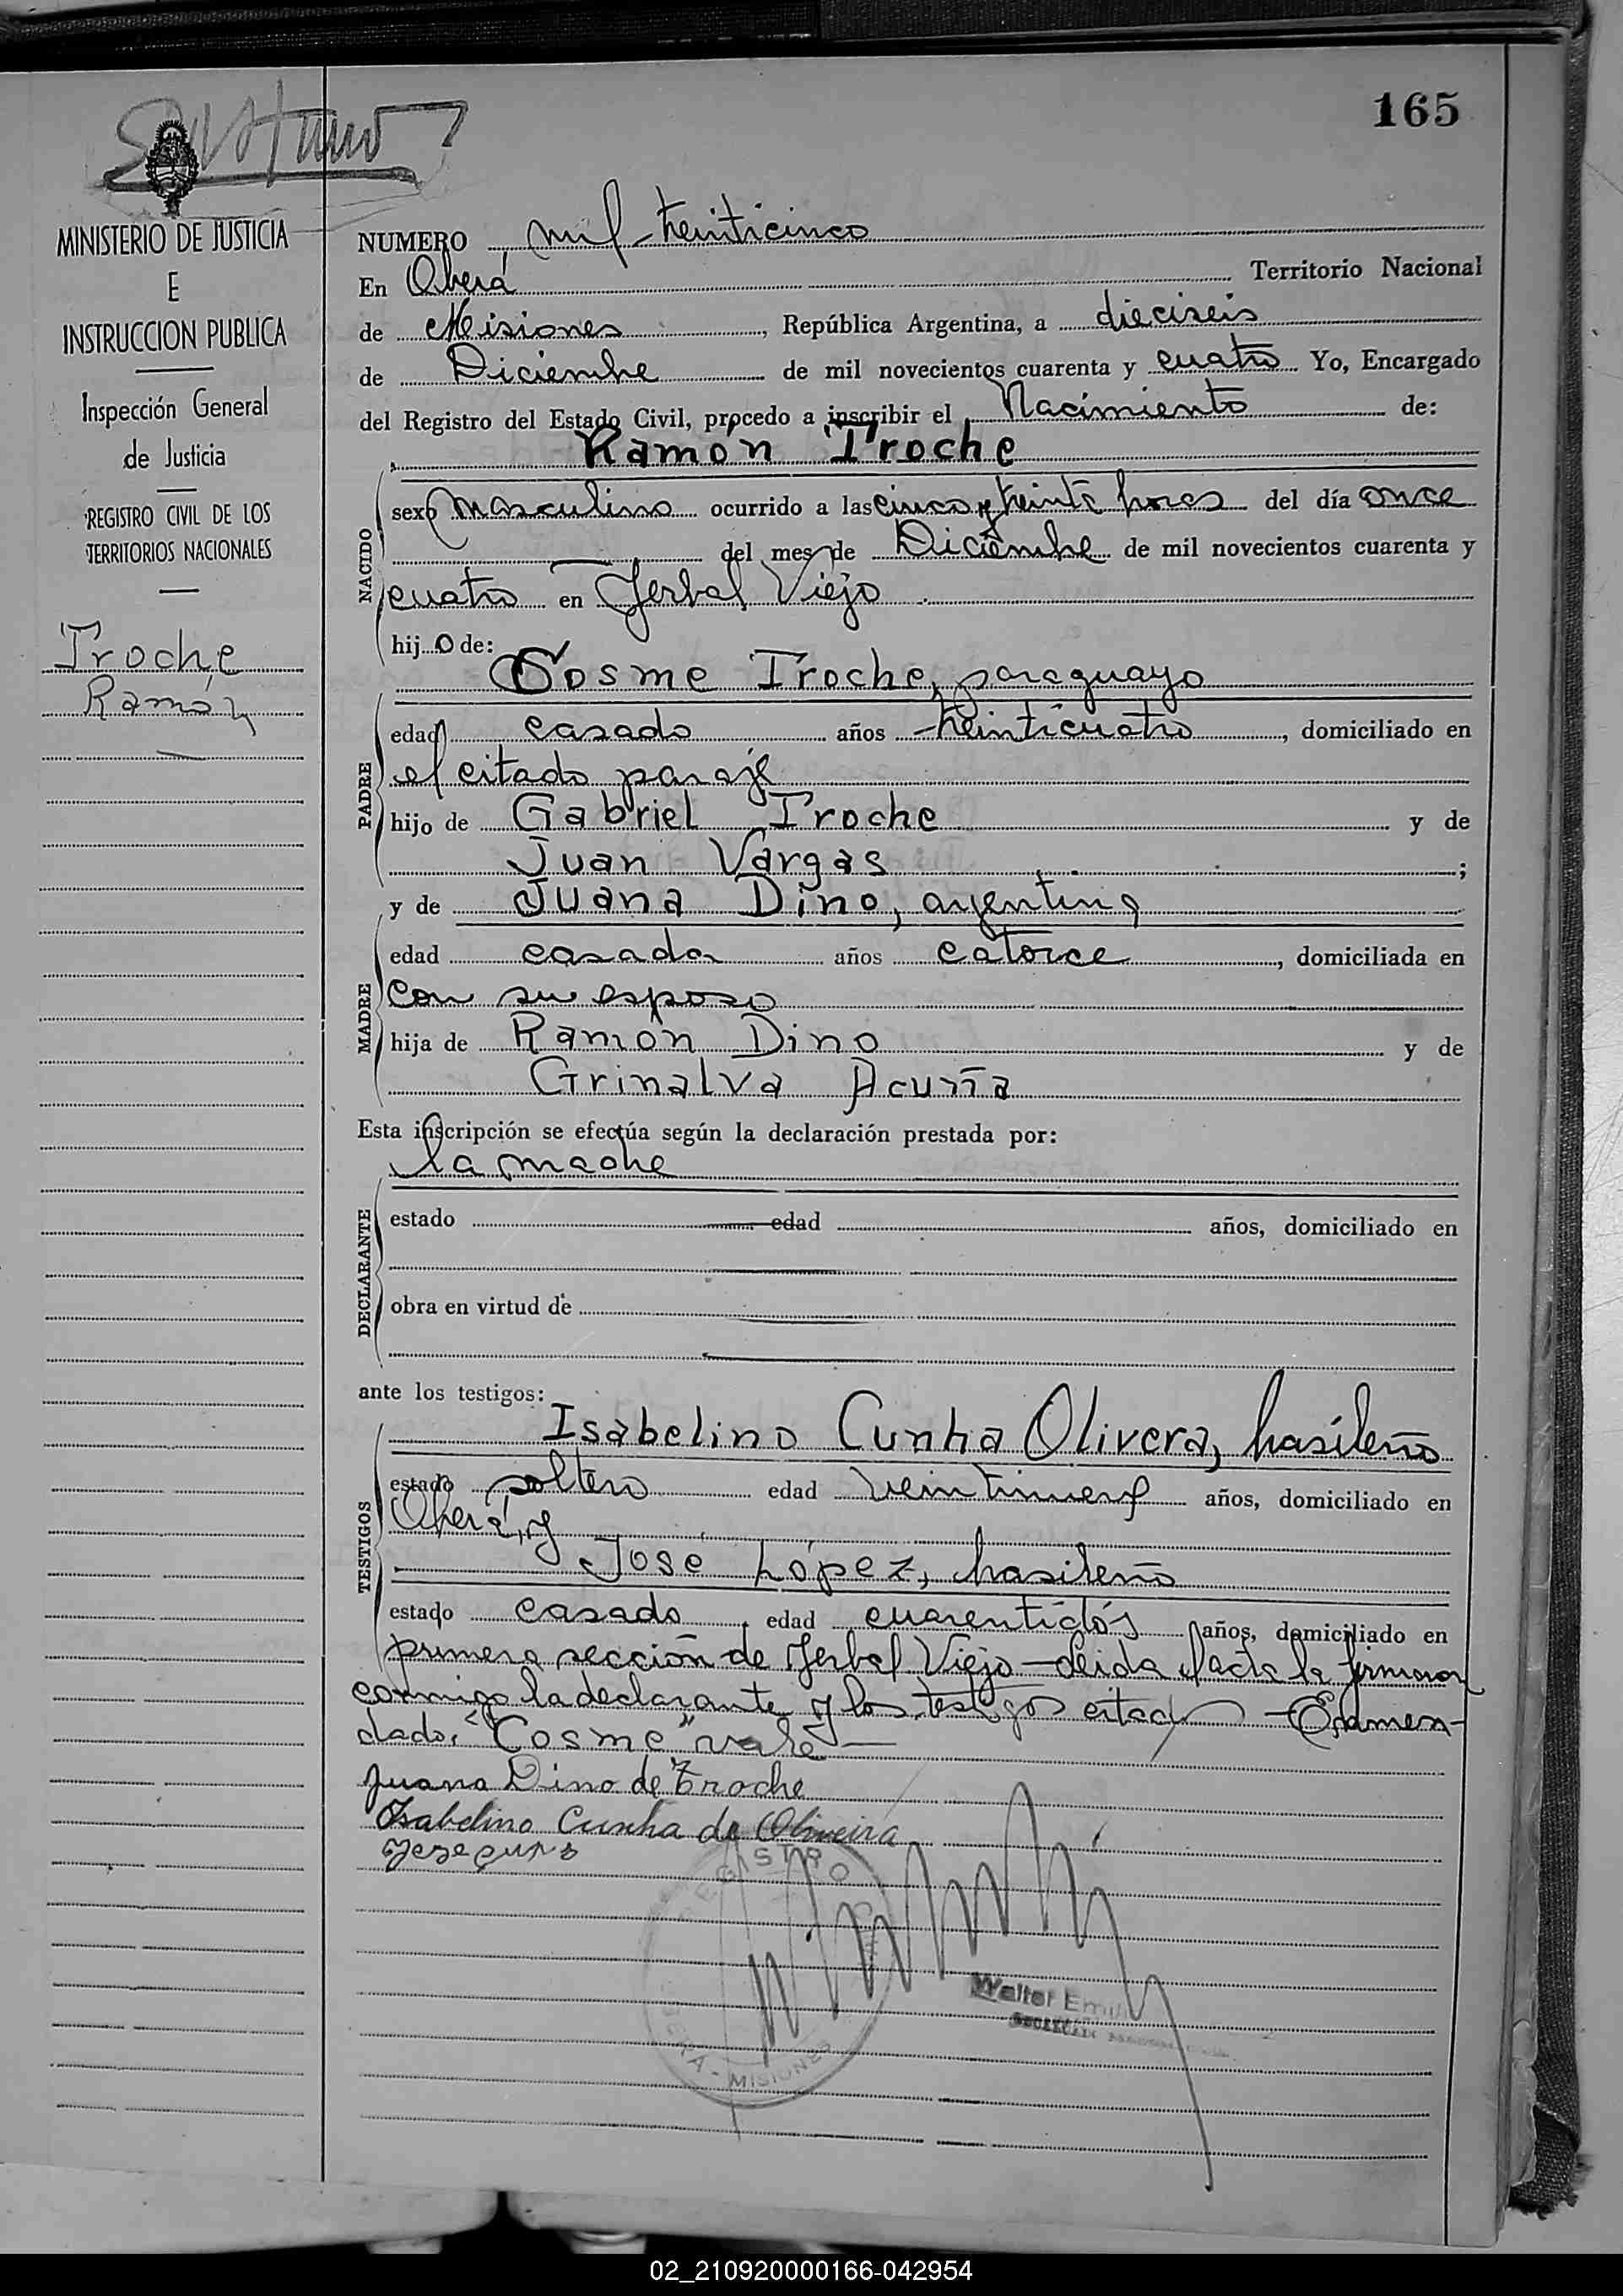 165
MINISTERIO DE JUSTICIA
E
INSTRUCCION PUBLICA
Inspección General
de Justicia
REGISTRO CIVIL DE LOS
TERRITORIOS NACIONALES
Troche
Ramón
NUMERO mil treinticinco
En Oberá Territorio Nacional
de Misiones, República Argentina, a dieciseis
de Diciembre de mil novecientos cuarenta y cuatro Yo, Encargado
del Registro del Estado Civil, procedo a inscribir el Nacimiento de:
Ramón Troche
NACIDO
sexo masculino ocurrido a las cinco y treinta horas del día once
del mes de Diciembre de mil novecientos cuarenta y
cuatro en Yerbal Viejo
hijo de:
Cosme Troche, paraguayo
PADRE
edad casado años treinticuatro, domiciliado en
el citado paraje
hijo de Gabriel Troche y de
Juan Vargas;
y de Juana Dino, argentina
MADRE
edad casada años catorce, domiciliada en
con su esposo
hija de Ramón Dino y de
Grinalva Acuña
Esta inscripción se efectúa según la declaración prestada por:
la madre
DECLARANTE
estado edad años, domiciliado en
obra en virtud de
ante los testigos:
Isabelino Cunha Olivera, brasileño
TESTIGOS
estado soltero edad veintinueve años, domiciliado en
Oberá, y
José López, brasileño
estado casado, edad cuarentidós años, domiciliado en
primera sección de Yerbal Viejo - leida el acta la firmaron
conmigo la declarante y los testigos citados - Enmen-
dado: "Cosme" vale -
Juana Dino de Troche
Isabelino Cunha de Oliveira
REGISTRO
MISIONES
Walter
02_210920000166-042954